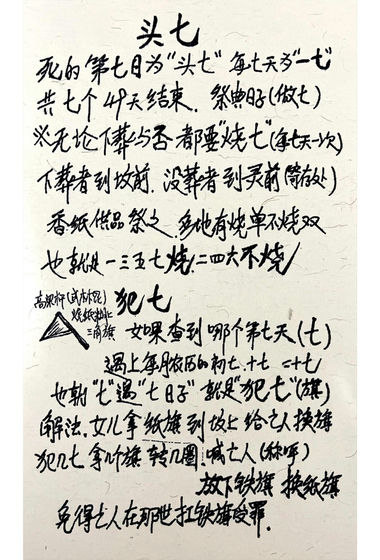 头七
死的第七日为"头七"每七天为"一七"
共七个49天结束.祭典日子(做七)
※无论下葬与否都要"烧七"(每七天一次)
下葬者到坟前.没葬者到灵前(寄存处)
香纸供品祭之.多地有烧单不烧双
也就是一三五七烧.二四六不烧
犯七
高粱杆(或木棍)
烧纸粘上
三角旗
如果查到哪个第七天(七)
遇上每月农历的初七.十七 二十七
也就"七"遇"七日子"就是"犯七"(旗)
解法.女儿拿纸旗到坟上给亡人换旗
犯几七拿几个旗转几圈.喊亡人(称呼)
放下铁旗 换纸旗
免得亡人在那世扛铁旗受罪.